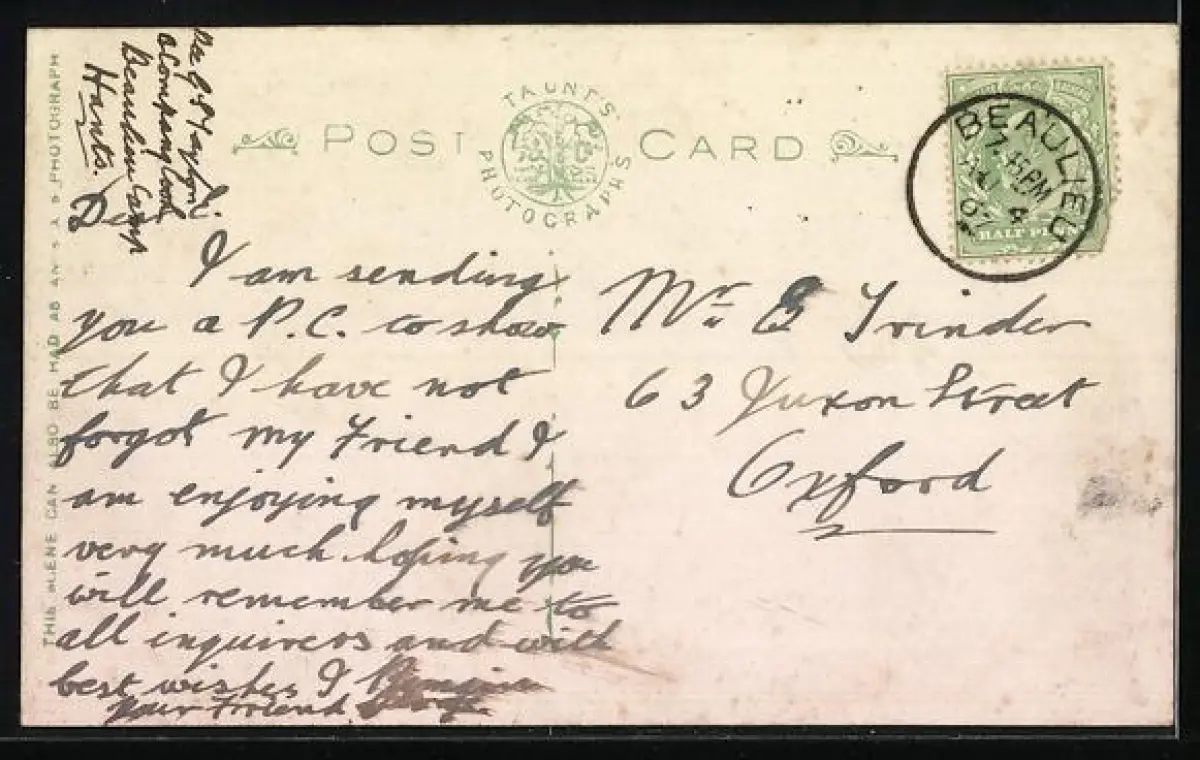 Company Cook
Beaulieu Camp
Hants.
POST CARD
TAUNT'S
PHOTOGRAPHS
BEAULIEU
PM
4
07
HALF PENNY
THIS SCENE CAN ALSO BE HAD AS AN PHOTOGRAPH
I am sending
you a P.C. to show
that I have not
forgot my Friend I
am enjoying myself
very much hoping you
will remember me to
all inquireos and with
best wishes I
your Friend
Mr E Trinder
63 Juxon Street
Oxford